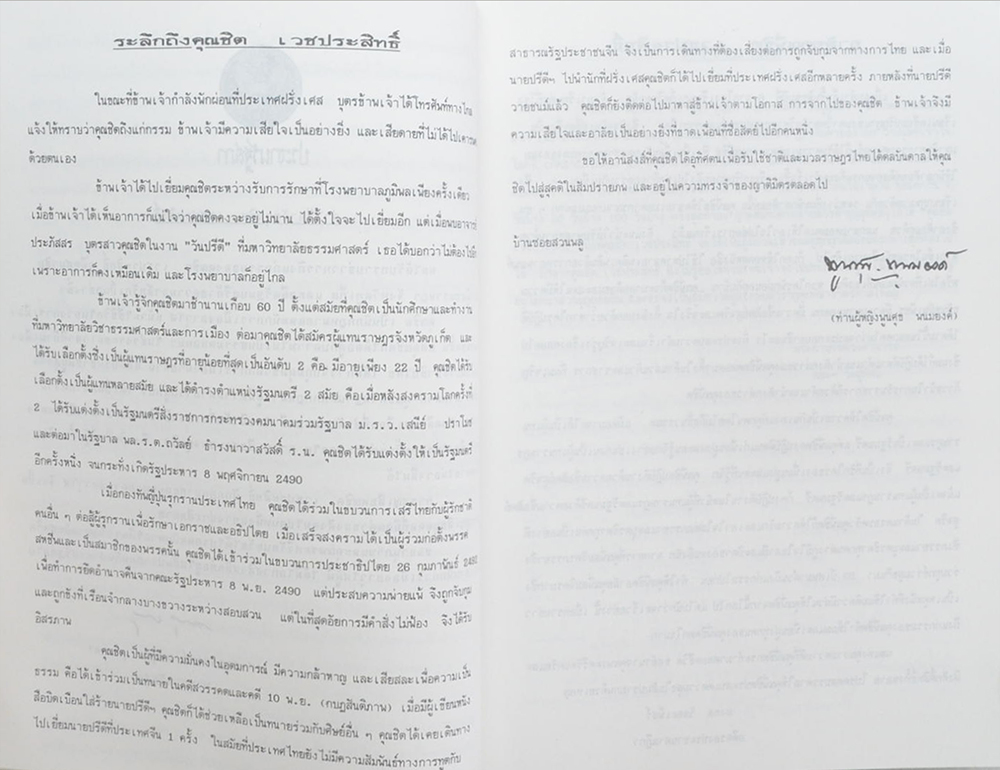 ระลึกถึงคุณชิต เวชประสิทธิ์
ในขณะที่ข้าพเจ้ากำลังพักผ่อนที่ประเทศฝรั่งเศส บุตรข้าพเจ้าได้โทรศัพท์ทางไกล
แจ้งให้ทราบว่าคุณชิตถึงแก่กรรม ข้าพเจ้ามีความเสียใจเป็นอย่างยิ่ง และเสียดายที่ไม่ได้ไปเคารพ
ด้วยตนเอง
ข้าพเจ้าได้ไปเยี่ยมคุณชิตระหว่างรับการรักษาที่โรงพยาบาลภูมิพลเพียงครั้งเดียว
เมื่อข้าพเจ้าได้เห็นอาการก็แน่ใจว่าคุณชิตคงจะอยู่ไม่นาน ได้ตั้งใจจะไปเยี่ยมอีก แต่เมื่อพบอาจารย์
ประภัสสร บุตรสาวคุณชิตในงาน "วันปรีดี" ที่มหาวิทยาลัยธรรมศาสตร์ เธอได้บอกว่าไม่ต้องไป
เพราะอาการก็คงเหมือนเดิม และโรงพยาบาลก็อยู่ไกล
ข้าพเจ้ารู้จักคุณชิตมาช้านานเกือบ 60 ปี ตั้งแต่สมัยที่คุณชิตเป็นนักศึกษาและทำงาน
ที่มหาวิทยาลัยวิชาธรรมศาสตร์และการเมือง ต่อมาคุณชิตได้สมัครผู้แทนราษฎรจังหวัดภูเก็ต และ
ได้รับเลือกตั้งซึ่งเป็นผู้แทนราษฎรที่อายุน้อยที่สุดเป็นอันดับ 2 คือ มีอายุเพียง 22 ปี คุณชิตได้รับ
เลือกตั้งเป็นผู้แทนหลายสมัย และได้ดำรงตำแหน่งรัฐมนตรี 2 สมัย คือเมื่อหลังสงครามโลกครั้งที่
2 ได้รับแต่งตั้งเป็นรัฐมนตรีสั่งราชการกระทรวงคมนาคมร่วมรัฐบาล ม.ร.ว.เสนีย์ ปราโมช
และต่อมาในรัฐบาล พล.ร.ต.ถวัลย์ ธำรงนาวาสวัสดิ์ ร.น. คุณชิตได้รับแต่งตั้งให้เป็นรัฐมนตรี
อีกครั้งหนึ่ง จนกระทั่งเกิดรัฐประหาร 8 พฤศจิกายน 2490
เมื่อกองทัพญี่ปุ่นรุกรานประเทศไทย คุณชิตได้ร่วมในขบวนการเสรีไทยกับผู้รักชาติ
คนอื่น ๆ ต่อสู้ผู้รุกรานเพื่อรักษาเอกราชและอธิปไตย เมื่อเสร็จสงครามได้เป็นผู้ร่วมก่อตั้งพรรค
สหชีพและเป็นสมาชิกของพรรคนั้น คุณชิตได้เข้าร่วมในขบวนการประชาธิปไตย 26 กุมภาพันธ์ 2492
เพื่อทำการยึดอำนาจคืนจากคณะรัฐประหาร 8 พ.ย. 2490 แต่ประสบความพ่ายแพ้ จึงถูกจับกุม
และถูกขังที่เรือนจำกลางบางขวางระหว่างสอบสวน แต่ในที่สุดอัยการมีคำสั่งไม่ฟ้อง จึงได้รับ
อิสรภาพ
คุณชิตเป็นผู้ที่มีความมั่นคงในอุดมการณ์ มีความกล้าหาญ และเสียสละเพื่อความเป็น
ธรรม คือได้เข้าร่วมเป็นทนายในคดีสวรรคตและคดี 10 พ.ย. (กบฏสันติภาพ) เมื่อมีผู้เขียนหนัง
สือบิดเบือนใส่ร้ายนายปรีดีฯ คุณชิตก็ได้ช่วยเหลือเป็นทนายร่วมกับศิษย์อื่น ๆ คุณชิตได้เคยเดินทาง
ไปเยี่ยมนายปรีดีที่ประเทศจีน 1 ครั้ง ในสมัยที่ประเทศไทยยังไม่มีความสัมพันธ์ทางการทูตกับ
สาธารณรัฐประชาชนจีน จึงเป็นการเดินทางที่ต้องเสี่ยงต่อการถูกจับกุมจากทางการไทย และเมื่อ
นายปรีดีฯ ไปพำนักที่ฝรั่งเศสคุณชิตก็ได้ไปเยี่ยมที่ประเทศฝรั่งเศสอีกหลายครั้ง ภายหลังที่นายปรีดี
วายชนม์แล้ว คุณชิตก็ยังติดต่อไปมาหาสู่ข้าพเจ้าตามโอกาส การจากไปของคุณชิต ข้าพเจ้าจึงมี
ความเสียใจและอาลัยเป็นอย่างยิ่งที่ขาดเพื่อนที่ซื่อสัตย์ไปอีกคนหนึ่ง
ขอให้อานิสงส์ที่คุณชิตได้อุทิศตนเพื่อรับใช้ชาติและมวลราษฎรไทยได้ดลบันดาลให้คุณ
ชิตไปสู่สุคติในสัมปรายภพ และอยู่ในความทรงจำของญาติมิตรตลอดไป
บ้านซอยสวนพลู
พูนศุข พนมยงค์
(ท่านผู้หญิงพูนศุข พนมยงค์)